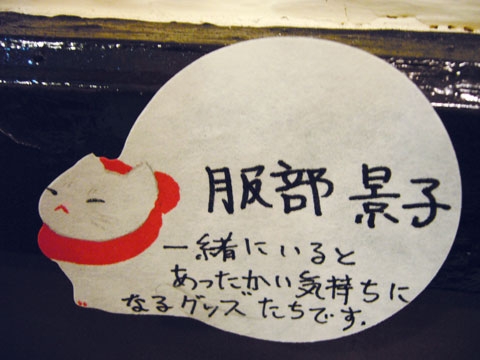 服部 景子
一緒にいると
あったかい気持ちに
なるグッズたちです.